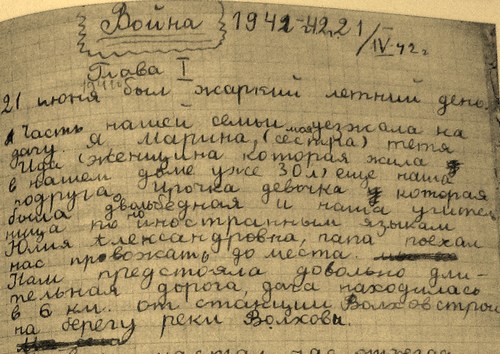 Война 1941-42 г. 21/IV-42 г
Глава I
21 июня 1941 был жаркий летний день.
Часть нашей семьи уезжала на
дачу. Я Марина, (моя сестра) тетя
Ида (женщина которая жила
в нашем доме уже 30 л) еще наша
подруга Ирочка девочка которая
была довольно бедная и наша учитель
ница по иностранным языкам
Юлия Александровна, папа поехал
нас провожать до места.
Нам предстояла довольно дли-
тельная дорога, дача находилась
в 6 км. от станции Волховстрой
на берегу реки Волхови.
настал час отъезда